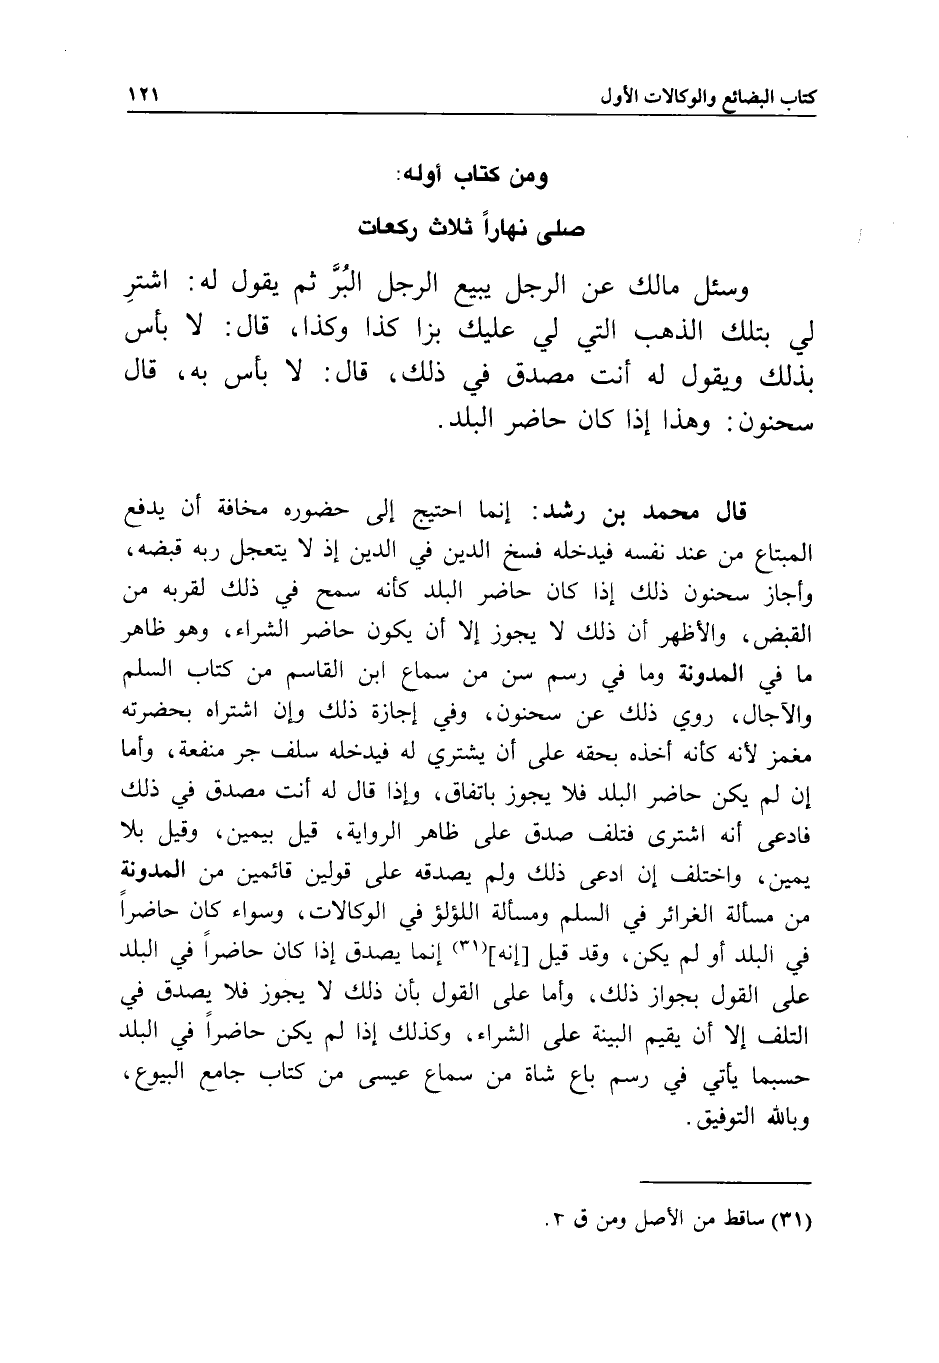 كتاب البضائع والوكالات الأول ١٢١
ومن كتاب أوله:
صلى نهاراً ثلاث ركعات
وسئل مالك عن الرجل يبيع الرجل البُرَّ ثم يقول له: اشترِ
لي بتلك الذهب التي لي عليك بزا كذا وكذا، قال: لا بأس
بذلك ويقول له أنت مصدق في ذلك، قال: لا بأس به، قال
سحنون: وهذا إذا كان حاضر البلد.
قال محمد بن رشد: إنما احتيج إلى حضوره مخافة أن يدفع
المبتاع من عند نفسه فيدخله فسخ الدين في الدين إذ لا يتعجل ربه قبضه،
وأجاز سحنون ذلك إذا كان حاضر البلد كأنه سمح في ذلك لقربه من
القبض، والأظهر أن ذلك لا يجوز إلا أن يكون حاضر الشراء، وهو ظاهر
ما في المدونة وما في رسم سن من سماع ابن القاسم من كتاب السلم
والآجال، روي ذلك عن سحنون، وفي إجازة ذلك وإن اشتراه بحضرته
مغمز لأنه كأنه أخذه بحقه على أن يشتري له فيدخله سلف جر منفعة، وأما
إن لم يكن حاضر البلد فلا يجوز باتفاق، وإذا قال له أنت مصدق في ذلك
فادعى أنه اشترى فتلف صدق على ظاهر الرواية، قيل بيمين، وقيل بلا
يمين، واختلف إن ادعى ذلك ولم يصدقه على قولين قائمين من المدونة
من مسألة الغرائر في السلم ومسألة اللؤلؤ في الوكالات، وسواء كان حاضراً
في البلد أو لم يكن، وقد قيل [إنه](٣١) إنما يصدق إذا كان حاضراً في البلد
على القول بجواز ذلك، وأما على القول بأن ذلك لا يجوز فلا يصدق في
التلف إلا أن يقيم البينة على الشراء، وكذلك إذا لم يكن حاضراً في البلد
حسبما يأتي في رسم باع شاة من سماع عيسى من كتاب جامع البيوع،
وبالله التوفيق.
(٣١) ساقط من الأصل ومن ق ٣.